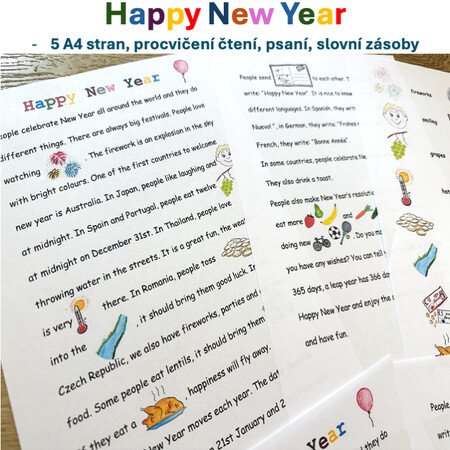 Happy New Year
- 5 A4 stran, procvičení čtení, psaní, slovní zásoby
Happy New Year
People celebrate New Year all around the world and they do
different things. There are always big festivals. People love
watching . The firework is an explosion in the sky
with bright colours. One of the first countries to welcome
new year is Australia. In Japan, people like laughing and
at midnight. In Spain and Portugal, people eat twelve
at midnight on December 31st. In Thailand, people love
throwing water in the streets. It is a great fun, the
is very there. In Romania, people toss
into the , it should bring them good luck. In
Czech Republic, we also have fireworks, parties and
food. Some people eat lentils, it should bring them
if they eat a , happiness will fly away.
New Year moves each year. The
21st January and 2
People send to each other. T
write: "Happy New Year". It is nice to know
different languages. In Spanish, they writ
Nuevo!", in German, they write: "Frohes
French, they write: "Bonne Année".
In some countries, people celebrate Ne
They also drink a toast.
People also make New Year's resolutio
eat more and
doing new . Do you ma
you have any wishes? You can tell
365 days, a leap year has 366 d
Happy New Year and enjoy the
and have fun.
fireworks
smiling
grapes
People
write
Year
and they do